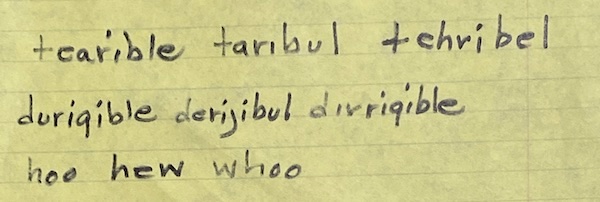 tearible taribul tehribel
durigible derijibul dirrigible
hoo hew whoo